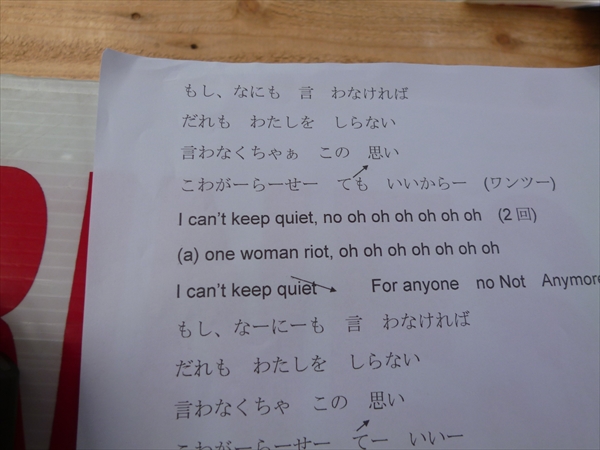 もし、なにも　言　わなければ
だれも　わたしを　しらない
言わなくちゃぁ　この　思い
こわがーらーせー　ても　いいからー　(ワンツー)
I can't keep quiet, no oh oh oh oh oh oh　(2 回)
(a) one woman riot, oh oh oh oh oh oh oh
I can't keep quiet　For anyone　no Not　Anymore
もし、なーにーも　言　わなければ
だれも　わたしを　しらない
言わなくちゃ　この　思い
こわがーらーせー　てー　いいー